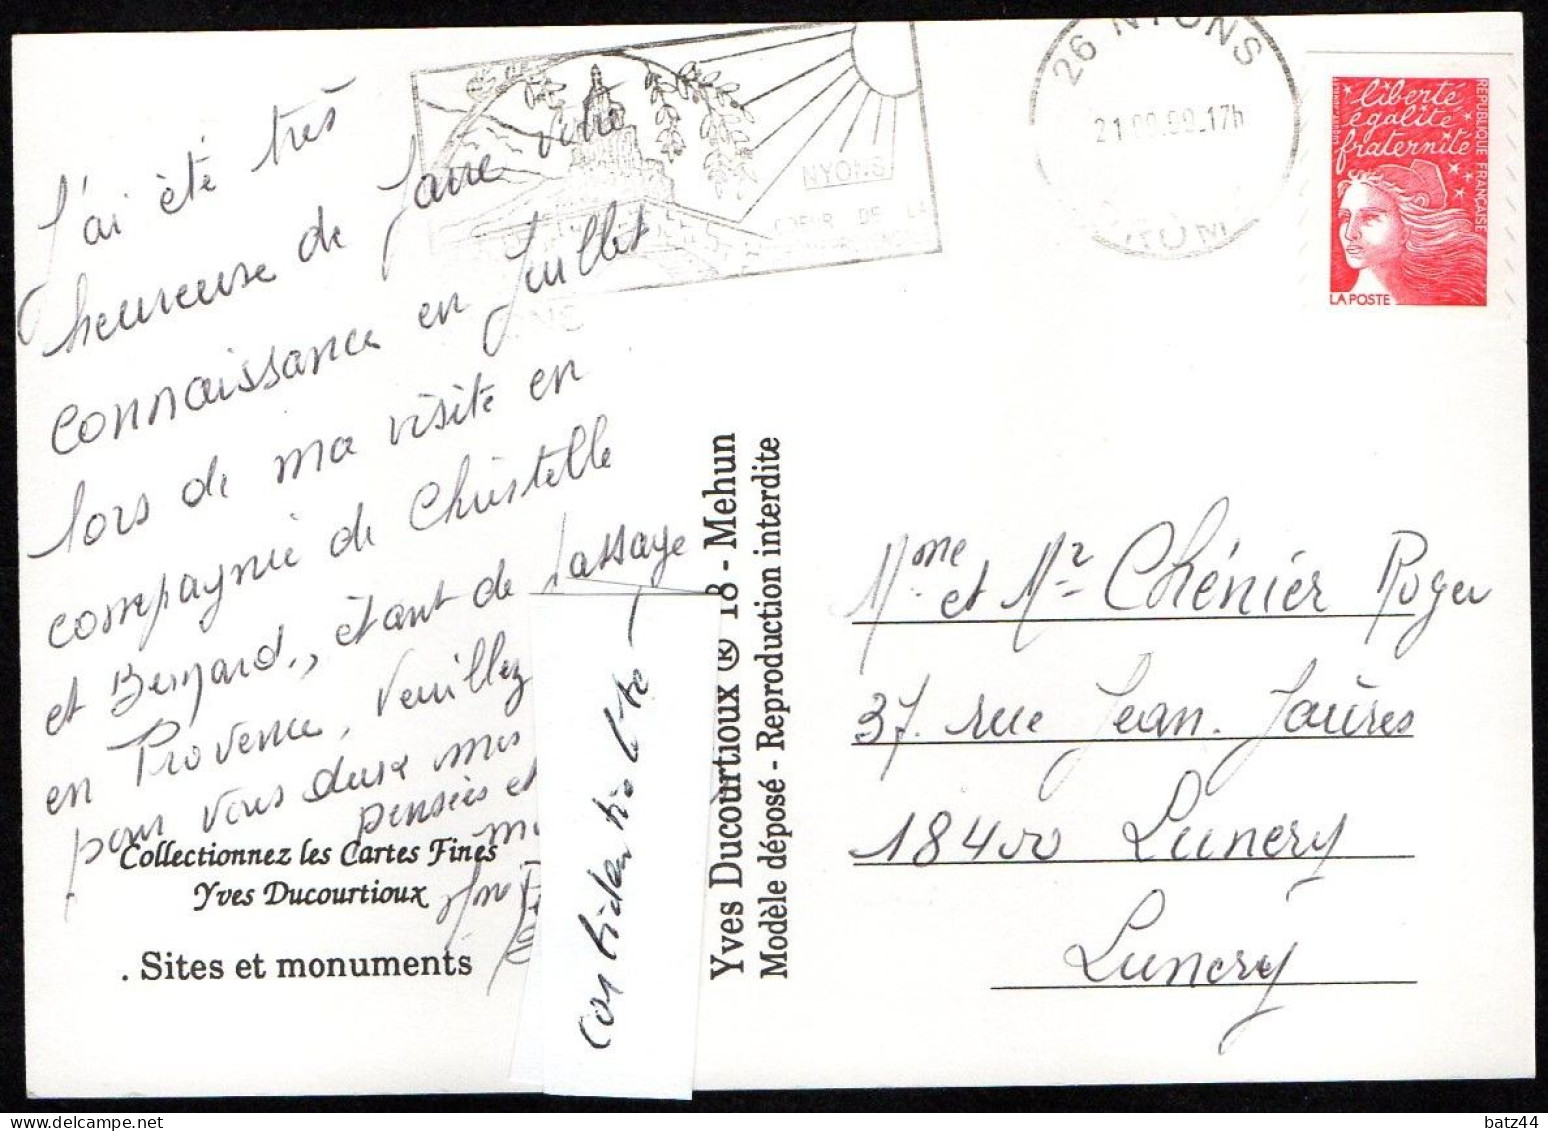 J'ai été très
heureuse de faire votre
connaissance en Juillet
lors de ma visite en
compagnie de Christelle
et Bernard., étant de passage
en Provence, Veuillez
pour vous deux mes
pensées et
Collectionnez les Cartes Fines
Yves Ducourtioux
. Sites et monuments
confidentialité
Yves Ducourtioux ® 18 - Mehun
Modèle déposé - Reproduction interdite
NYONS
COEUR DE LA
26 NYONS
17h
liberté
égalité
fraternité
REPUBLIQUE FRANÇAISE
LA POSTE
Mme et Mr Chénier Roger
37. rue Jean. Jaurès
18400 Lunery
Lunery
batz44